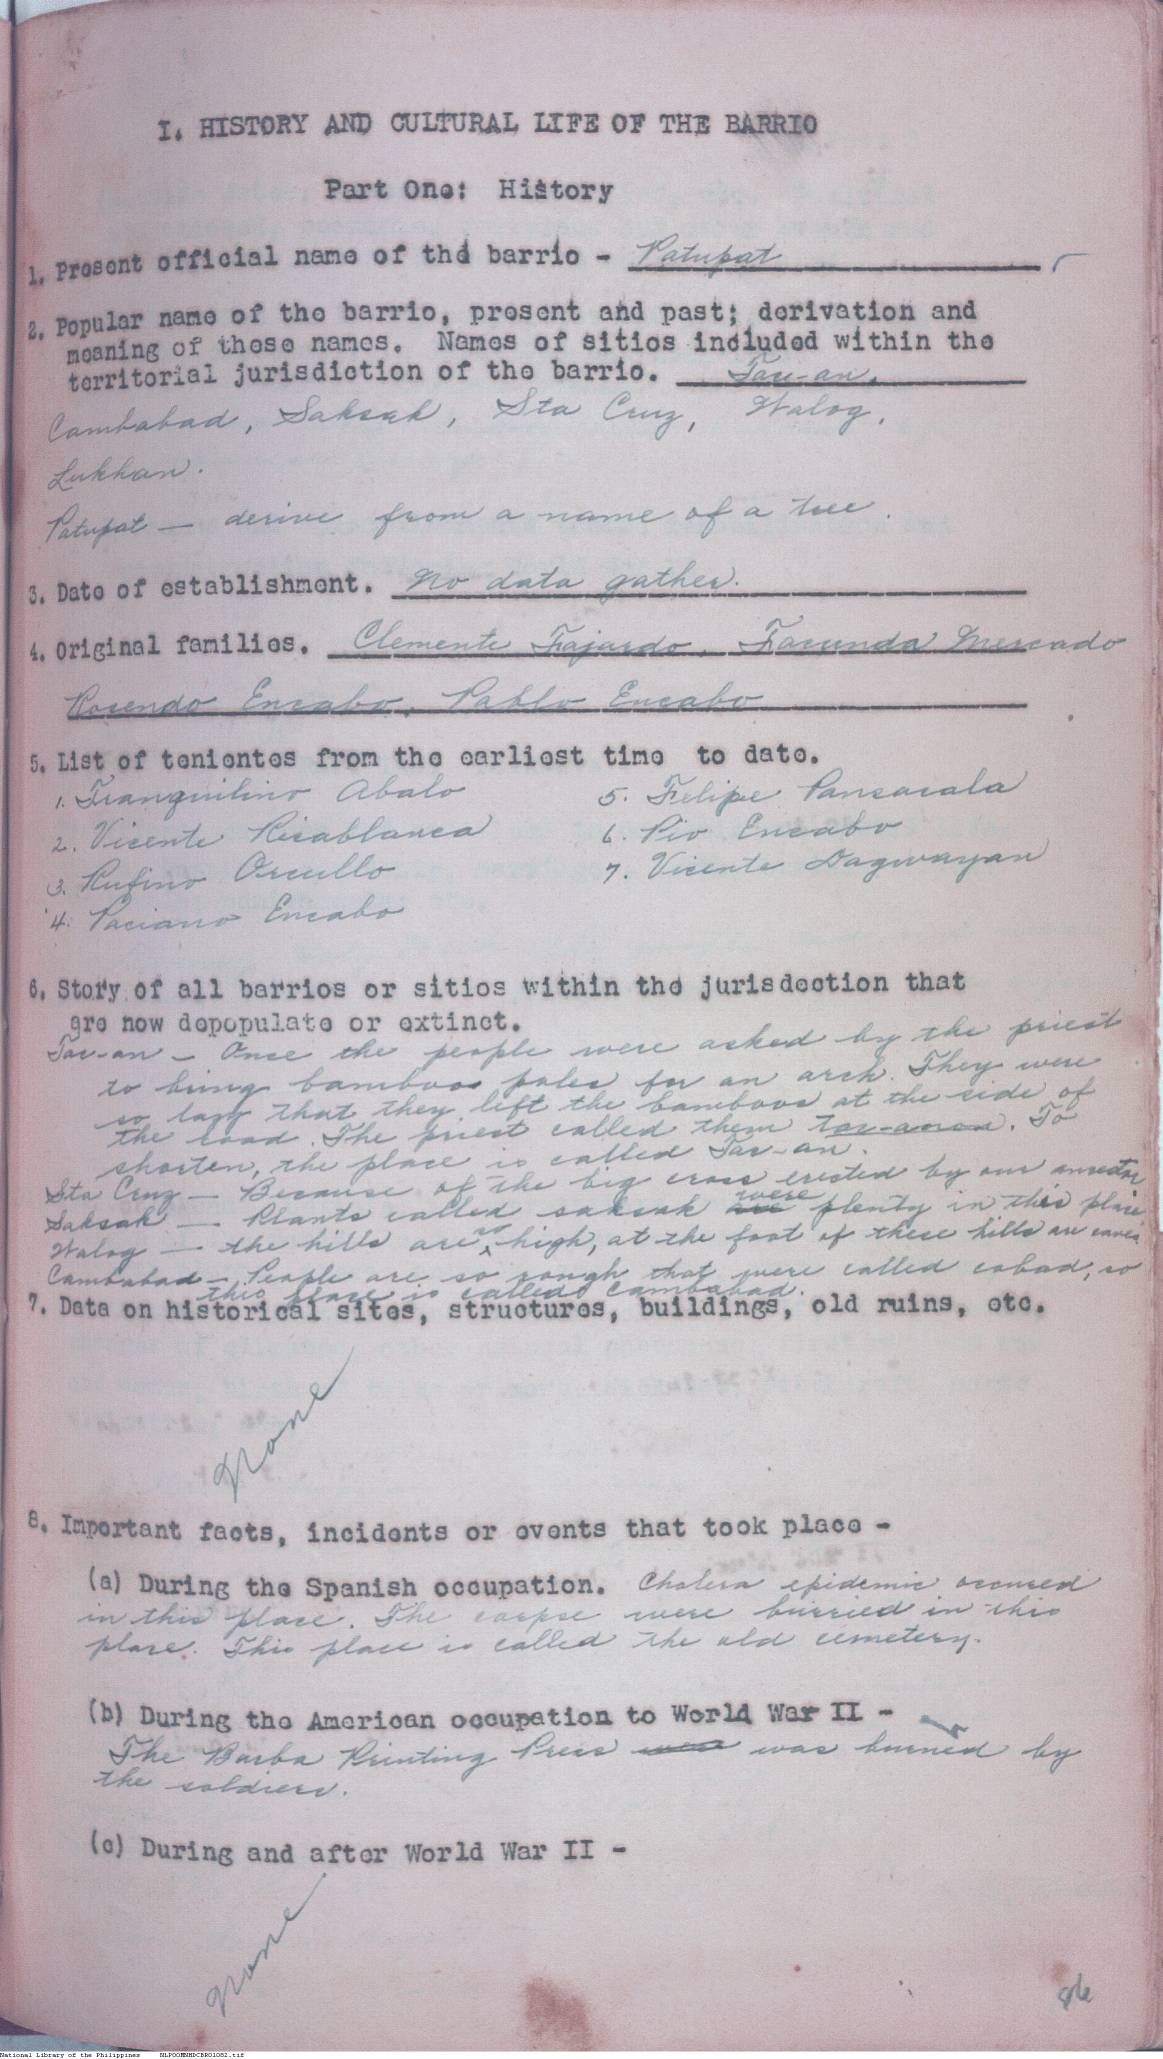 I. HISTORY AND CULTURAL LIFE OF THE BARRIO
Part One: History
1. Present official name of the barrio - Patupat
2. Popular name of the barrio, present and past; derivation and
meaning of these names. Names of sitios included within the
territorial jurisdiction of the barrio. Tav-an,
Cambabad, Saksak, Sta Cruz, Walog,
Lukban.
Patupat — derive from a name of a tree.
3. Date of establishment. No data gather.
4. Original families. Clemente Fajardo, Facunda Mercado
Rosendo Encabo, Pablo Encabo
5. List of tenientes from the earliest time to date.
1. Tranquilino Abalo
2. Vicente Risablanca
3. Rufino Orcullo
4. Paciano Encabo
5. Felipe Pansacala
6. Pio Encabo
7. Vicente Dagwayan
6. Story of all barrios or sitios within the jurisdection that
are now depopulate or extinct.
Tav-an — Once the people were asked by the priest
to bring bamboos poles for an arch. They were
so lazy that they left the bamboos at the side of
the road. The priest called them. To
shorten, the place is called Tav-an.
Sta Cruz — Because of the big cross erected by our ancestor
Saksak — Plants called saksak were plenty in this place
Walog — the hills are so high, at the foot of these hills are caves
Cambabad — People are so rough that were called cabad, so
this place is called Cambabad.
7. Data on historical sites, structures, buildings, old ruins, etc.
None
8. Important facts, incidents or events that took place -
(a) During the Spanish occupation. Cholera epidemic occured
in this place. The corpse were burried in this
place. This place is called the old cemetery.
(b) During the American occupation to World War II -
The Barba Printing Press was burned by
the soldiers.
(c) During and after World War II -
None
86
National Library of the Philippines NLPOOMNHDCBR01082.tif